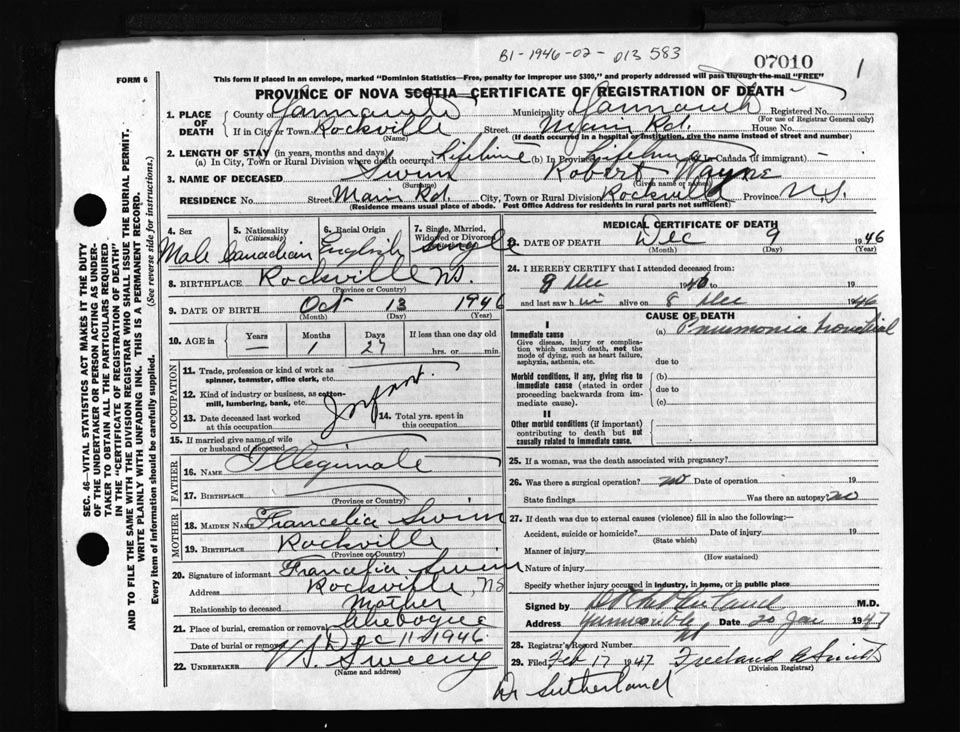 B1-1946-02-013583
07010
1
FORM 6
This form if placed in an envelope, marked "Dominion Statistics—Free, penalty for improper use $300," and properly addressed will pass through the mail "FREE"
PROVINCE OF NOVA SCOTIA—CERTIFICATE OF REGISTRATION OF DEATH
1. PLACE OF DEATH County of Yarmouth Municipality of Yarmouth Registered No.
(For use of Registrar General only)
If in City or Town Rockville Street Main Rd. House No.
(Name) (If death occurred in a hospital or institution, give the name instead of street and number)
2. LENGTH OF STAY (in years, months and days)
(a) In City, Town or Rural Division where death occurred Lifetime (b) In Province Lifetime (c) In Canada (if immigrant)
3. NAME OF DECEASED Swim Robert Wayne
(Surname) (Given name or names)
RESIDENCE No. Street Main Rd. City, Town or Rural Division Rockville Province N.S.
(Residence means usual place of abode. Post Office Address for residents in rural parts not sufficient)
4. Sex Male
5. Nationality (Citizenship) Canadian
6. Racial Origin English
7. Single, Married, Widowed or Divorced Single
8. BIRTHPLACE Rockville N.S.
(Province or Country)
9. DATE OF BIRTH Oct 13 1946
(Month) (Day) (Year)
10. AGE in Years — Months 1 Days 27 If less than one day old
hrs. or min.
OCCUPATION
11. Trade, profession or kind of work as spinner, teamster, office clerk, etc.
12. Kind of industry or business, as cotton-mill, lumbering, bank, etc. Infant
13. Date deceased last worked at this occupation
14. Total yrs. spent in this occupation
15. If married give name of wife or husband of deceased
FATHER
16. NAME Illegimate
17. BIRTHPLACE
(Province or Country)
MOTHER
18. MAIDEN NAME Francelia Swim
19. BIRTHPLACE Rockville
(Province or Country)
20. Signature of informant Francelia Swim
Address Rockville, N.S
Relationship to deceased Mother
21. Place of burial, cremation or removal Chebogue
Date of burial or removal Dec 11 1946
22. UNDERTAKER V.S. Sweeny
(Name and address)
MEDICAL CERTIFICATE OF DEATH
23. DATE OF DEATH Dec 9 1946
(Month) (Day) (Year)
24. I HEREBY CERTIFY that I attended deceased from:
9 Dec 1946 to 19
and last saw h im alive on 8 Dec 1946
CAUSE OF DEATH
I
Immediate cause (a) Pneumonia
Give disease, injury or complication which caused death, not the mode of dying, such as heart failure, asphyxia, asthenia, etc. due to
Morbid conditions, if any, giving rise to immediate cause (stated in order proceeding backwards from immediate cause). (b)
due to
(c)
II
Other morbid conditions (if important) contributing to death but not causally related to immediate cause.
25. If a woman, was the death associated with pregnancy?
26. Was there a surgical operation? no Date of operation 19
State findings Was there an autopsy? no
27. If death was due to external causes (violence) fill in also the following:—
Accident, suicide or homicide? Date of injury 19
(State which)
Manner of injury
(How sustained)
Nature of injury
Specify whether injury occurred in industry, in home, or in public place
Signed by M.D.
Address Yarmouth NS Date 20 Jan 1947
28. Registrar's Record Number
29. Filed Feb 17 1947 Freeland A Smith
(Division Registrar)
Dr Sutherland
SEC. 46—VITAL STATISTICS ACT MAKES IT THE DUTY
OF THE UNDERTAKER OR PERSON ACTING AS UNDER-
TAKER TO OBTAIN ALL THE PARTICULARS REQUIRED
IN THE "CERTIFICATE OF REGISTRATION OF DEATH"
AND TO FILE THE SAME WITH THE DIVISION REGISTRAR WHO SHALL ISSUE THE BURIAL PERMIT.
WRITE PLAINLY WITH UNFADING INK. THIS IS A PERMANENT RECORD.
Every item of information should be carefully supplied. (See reverse side for instructions.)